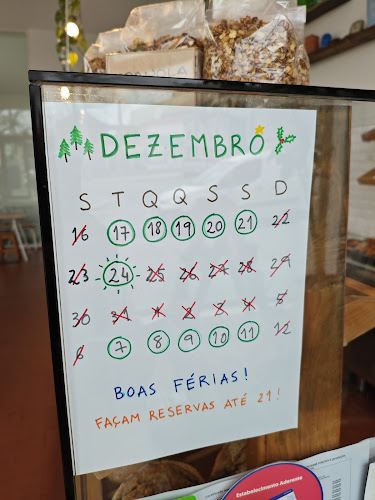 DEZEMBRO
S T Q Q S S D
16 17 18 19 20 21 22
23 24 25 26 27 28 29
30 31 1 2 3 4 5
6 7 8 9 10 11 12
BOAS FÉRIAS!
FAÇAM RESERVAS ATÉ 21!
Estabelecimento Aderente